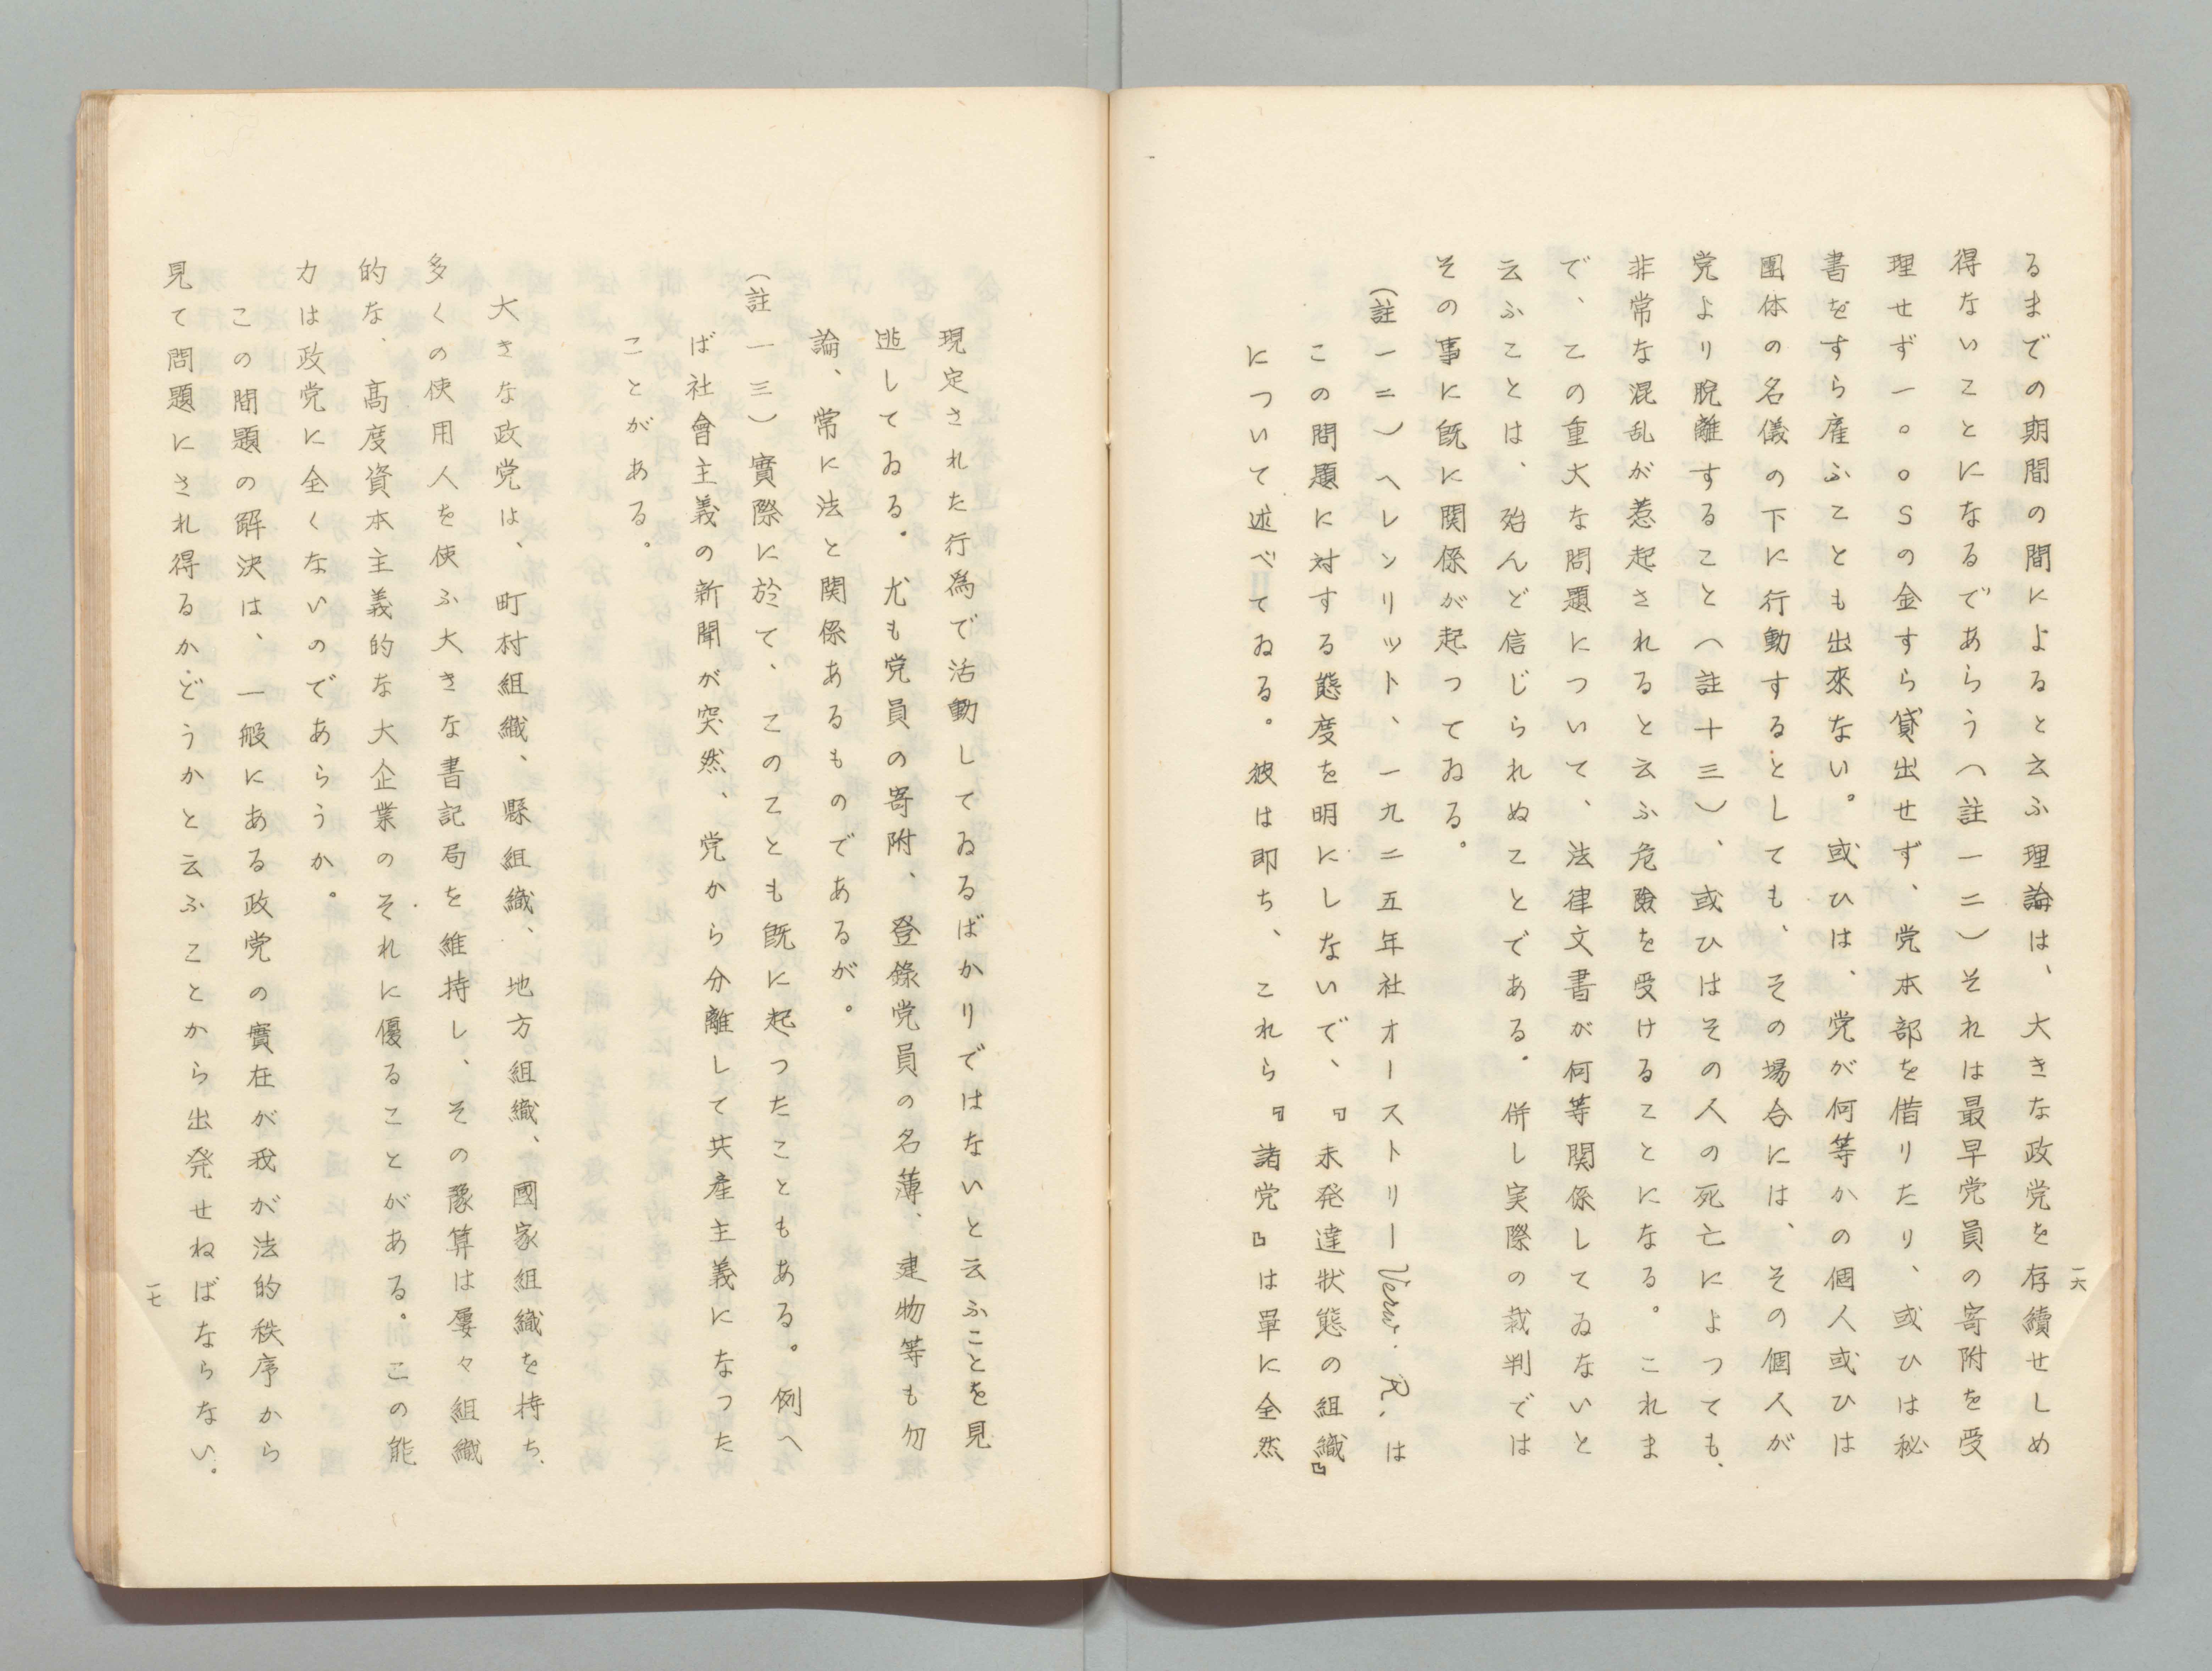 一六
るまでの期間の間によると云ふ理論は、大きな政党を存續せしめ
得ないことになるであらう（註一二）それは最早党員の寄附を受
理せず一〇〇Sの金すら貸出せず、党本部を借りたり、或ひは秘
書をすら雇ふことも出來ない。或ひは、党が何等かの個人或ひは
團体の名儀の下に行動するとしても、その場合には、その個人が
党より脫離すること（註十三）、或ひはその人の死亡によつても、
非常な混乱が惹起されると云ふ危險を受けることになる。これま
で、この重大な問題について、法律文書が何等関係してゐないと
云ふことは、殆んど信じられぬことである。併し実際の裁判では
その事に既に関係が起つてゐる。
（註一二）ヘレンリット、一九二五年社オーストリーVerw. R. は
この問題に対する態度を明にしないで、『未発達狀態の組織』
について述べてゐる。彼は即ち、これら『諸党』は單に全然
現定された行為で活動してゐるばかりではないと云ふことを見
逃してゐる。尤も党員の寄附、登錄党員の名薄、建物等も勿
論、常に法と関係あるものであるが。
（註一三）實際に於て、このことも既に起つたこともある。例へ
ば社會主義の新聞が突然、党から分離して共産主義になった
ことがある。
大きな政党は、町村組織、縣組織、地方組織、國家組織を持ち、
多くの使用人を使ふ大きな書記局を維持し、その豫算は屢々組織
的な、高度資本主義的な大企業のそれに優ることがある。この能
力は政党に全くないのであらうか。
この問題の解決は、一般にある政党の實在が我が法的秩序から
見て問題にされ得るかどうかと云ふことから出発せねばならない。
一七